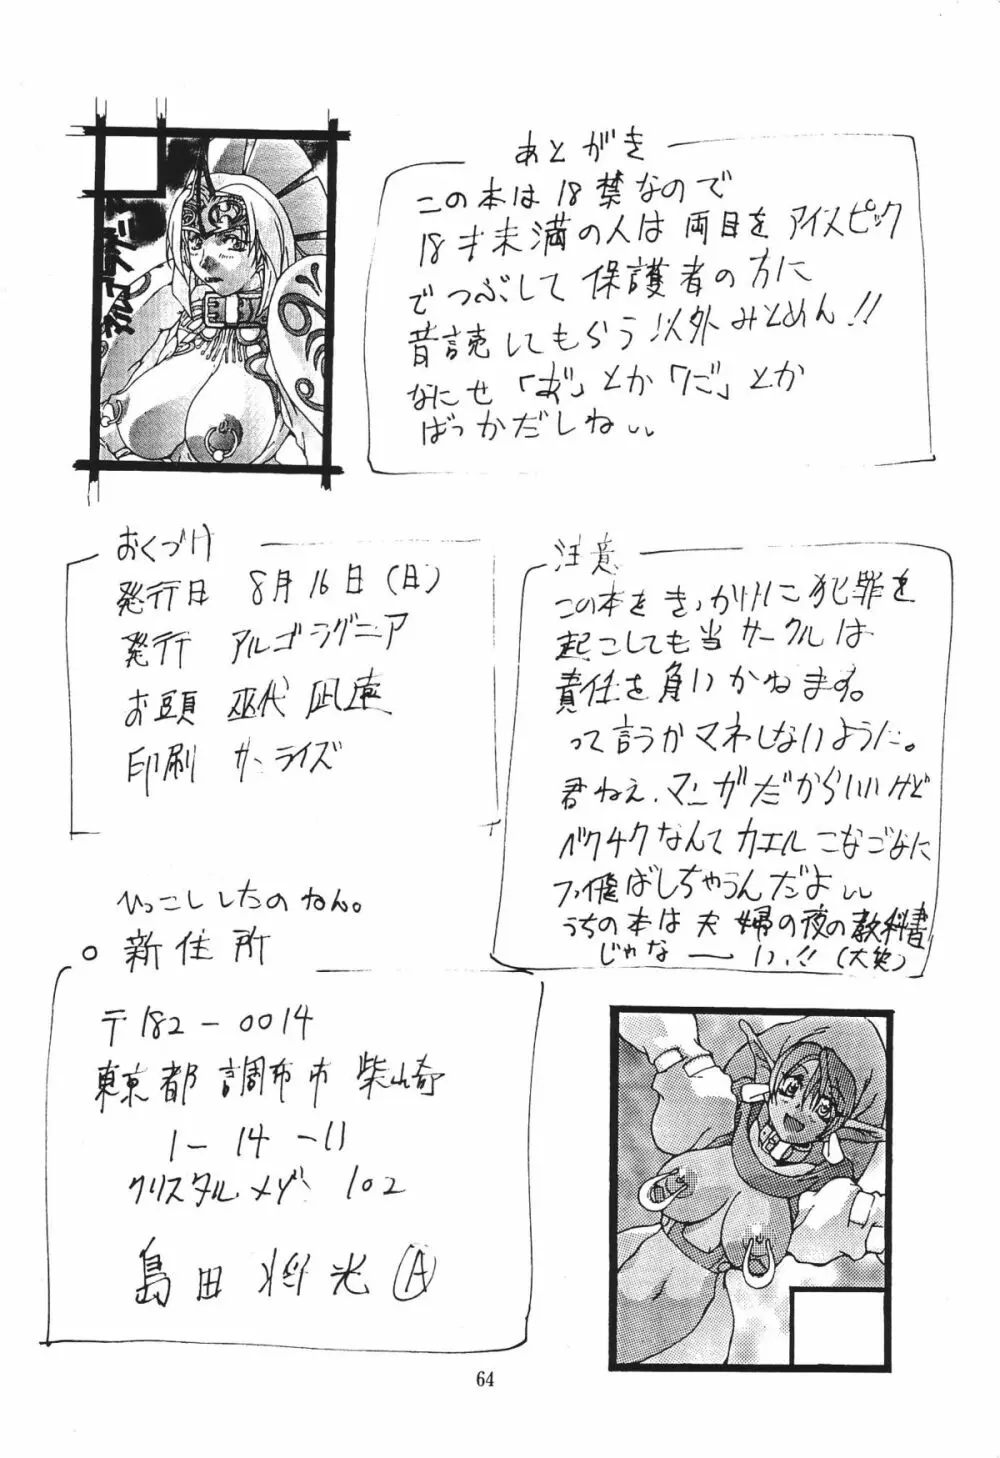 あとがき
この本は18禁なので
18才未満の人は両目をアイスピック
でつぶして保護者の方に
音読してもらう以外みとめん!!
なにせ「お゛」とか「ご」とか
ばっかだしねぃぃ
おくづけ
発行日 8月16日(日)
発行 アルゴラグニア
お頭 巫代凪遠
印刷 サンライズ
注意
この本をきっかけに犯罪を
起こしても当サークルは
責任を負いかねます。
って言うかマネしないように。
君ねぇ、マンガだからいいけど
ベクチクなんてカエルこなごなに
フッ飛ばしちゃうんだよぃぃ
うちの本は夫婦の夜の教科書
じゃなーい!!(大笑)
ひっこししたのねん。
○新住所
〒182-0014
東京都調布市柴崎
1-14-11
クリスタルメゾン102
島田将光Ⓐ
64